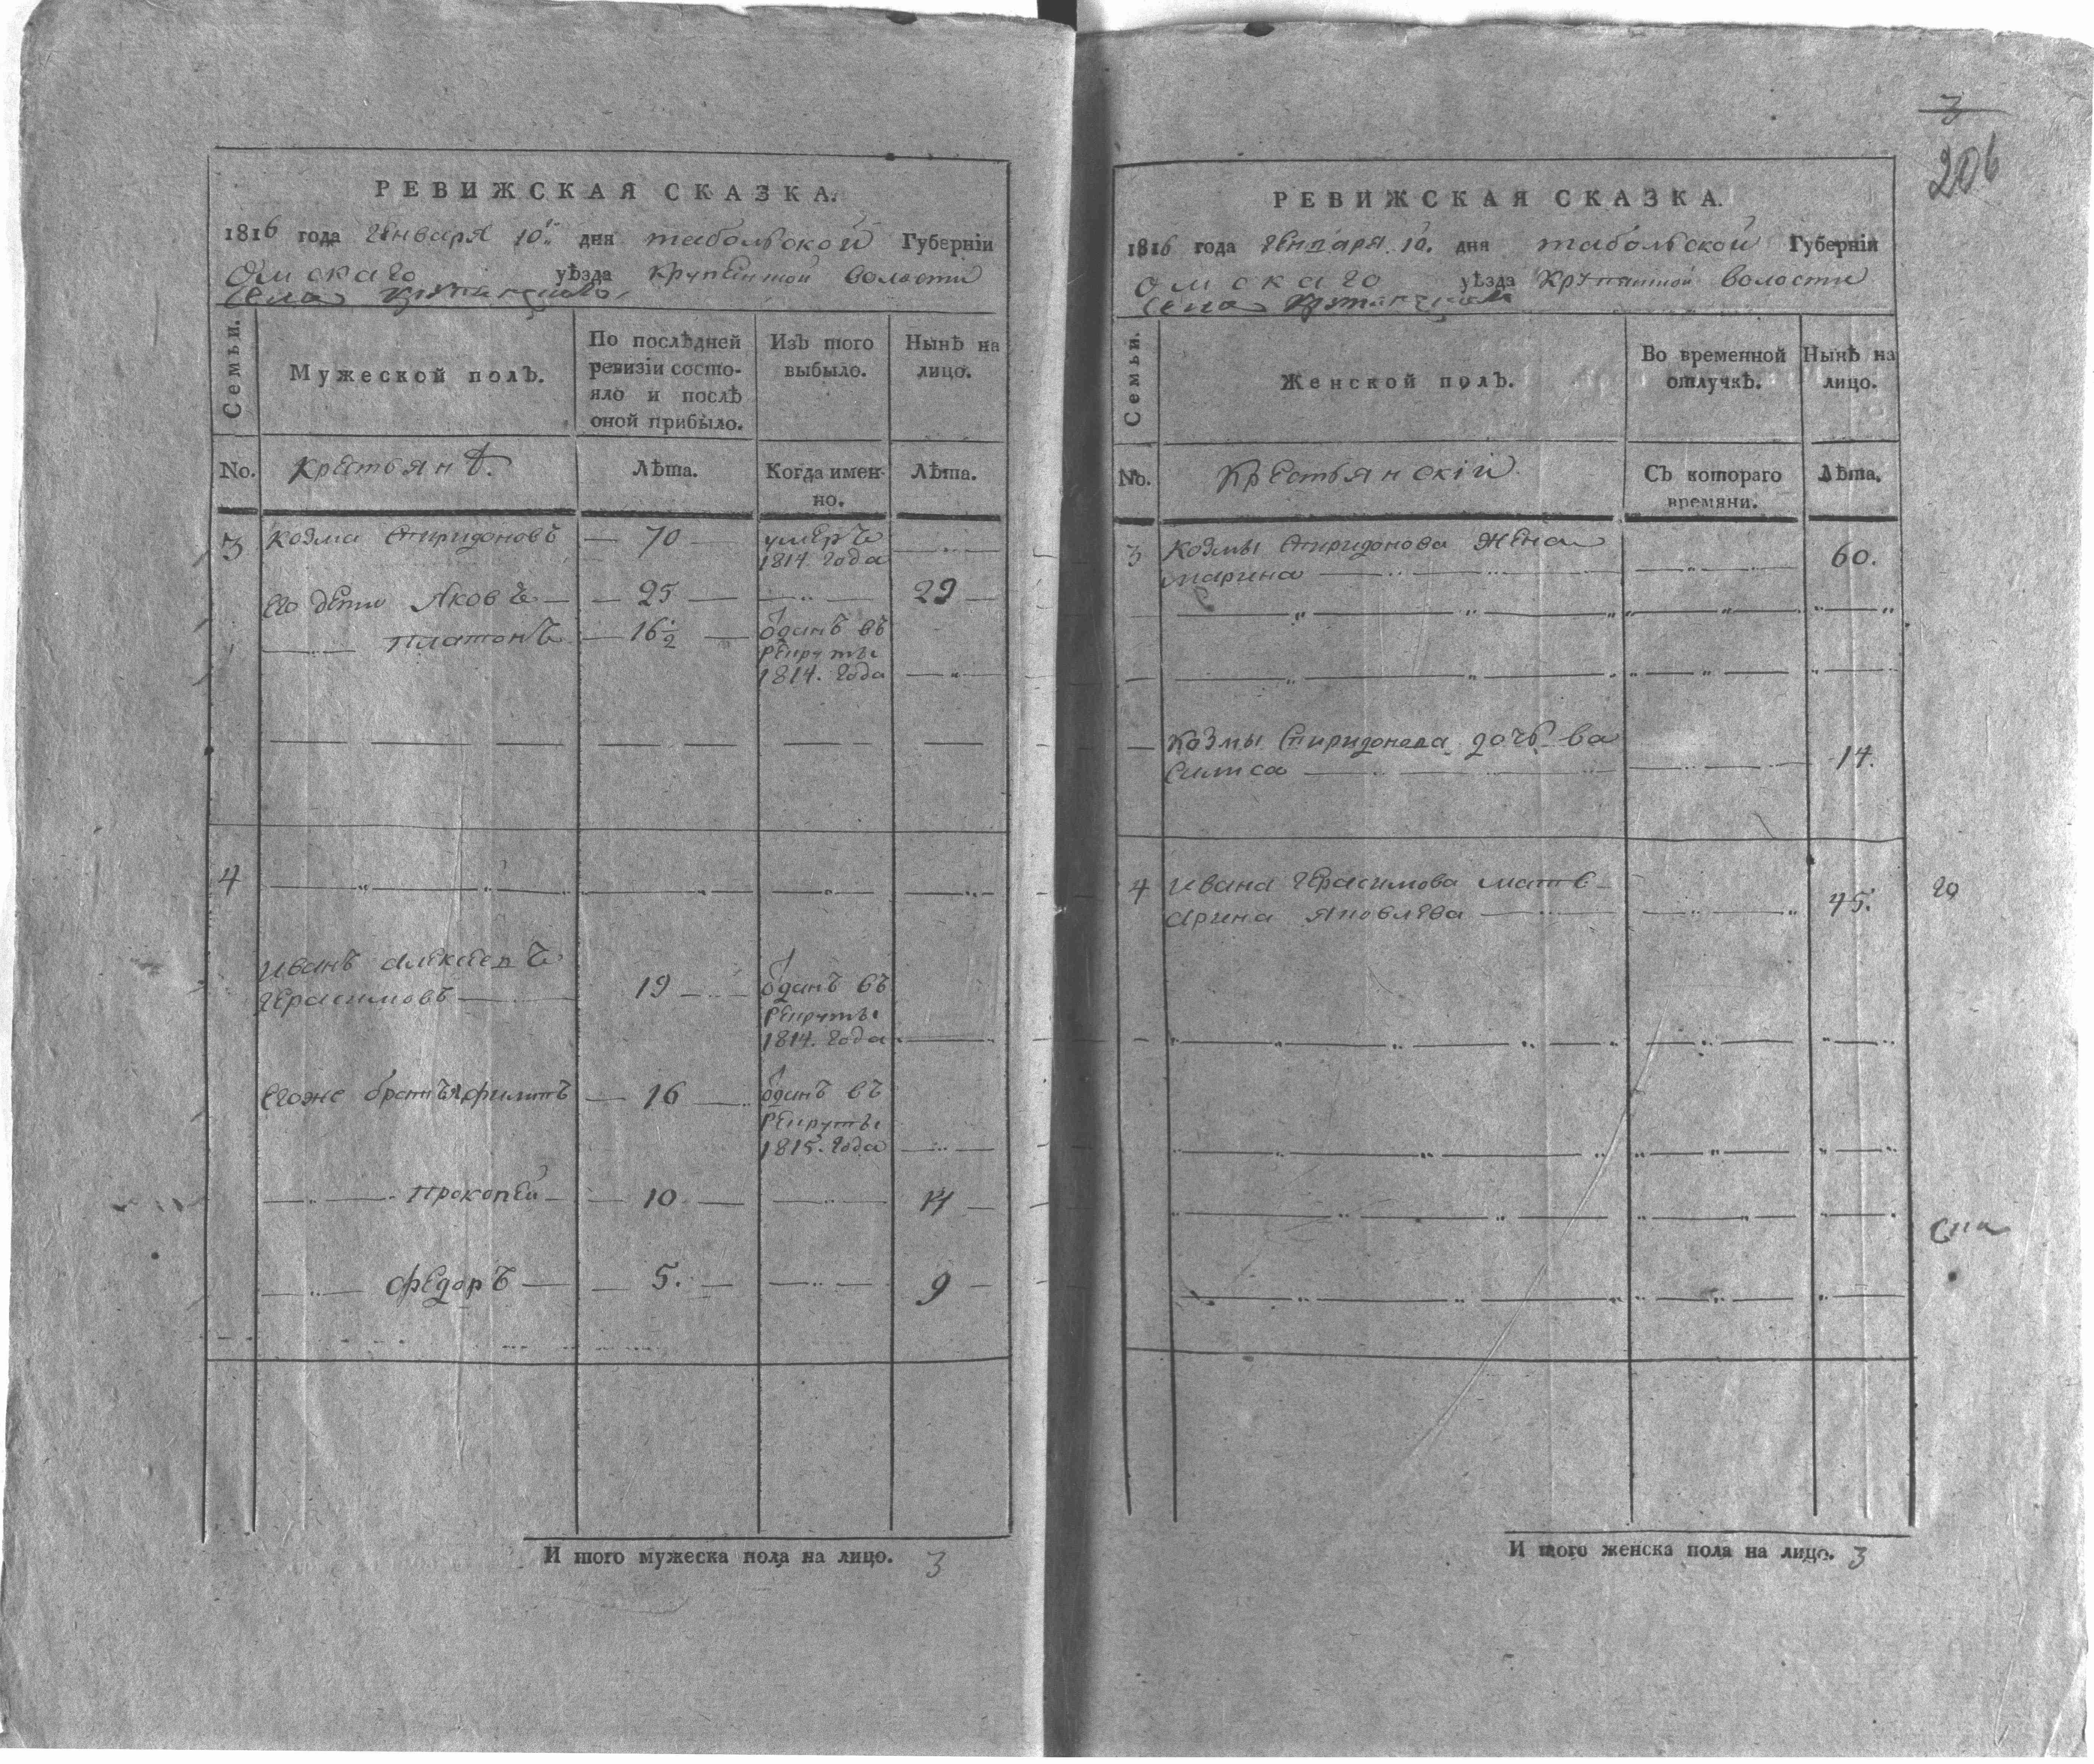 РЕВИЖСКАЯ СКАЗКА.
1816 года Генваря 10. дня тобольской Губерніи
Омскаго уѣзда волости
Села
Семьи.
Мужеской полъ.
По послѣдней ревизіи состо-
яло и послѣ
оной прибыло.
Изъ того
выбыло.
Нынѣ на
лицо.
No.
Крестьянъ.
Лѣта.
Когда имен-
но.
Лѣта.
3 Козма Спиридоновъ — 70 — умеръ
1814. года
Его дети Яковъ — 25 — 29
Платонъ — 16 1/2 — отданъ въ
рекруты
1814. года
4
Иванъ
Герасимовъ — 19 — отданъ въ
рекруты
1814. года
Егоже братъ — 16 — отданъ въ
рекруты
1815. года
Прокопей — 10 — 14
Федоръ — 5. — 9
И того мужеска пола на лицо. 3
3
206
РЕВИЖСКАЯ СКАЗКА.
1816 года Генваря 10. дня тобольской Губерніи
Омскаго уѣзда волости
Села
Семьи.
Женской полъ.
Во временной
отлучкѣ.
Нынѣ на
лицо.
No.
Крестьянскій
Съ котораго
времяни.
Лѣта.
3 Козмы Спиридонова жена
Марина 60.
Козмы Спиридонова дочь Ва
силиса 14.
4 Ивана Герасимова мать
Арина Яковлева 45.
И того женска пола на лицо. 3